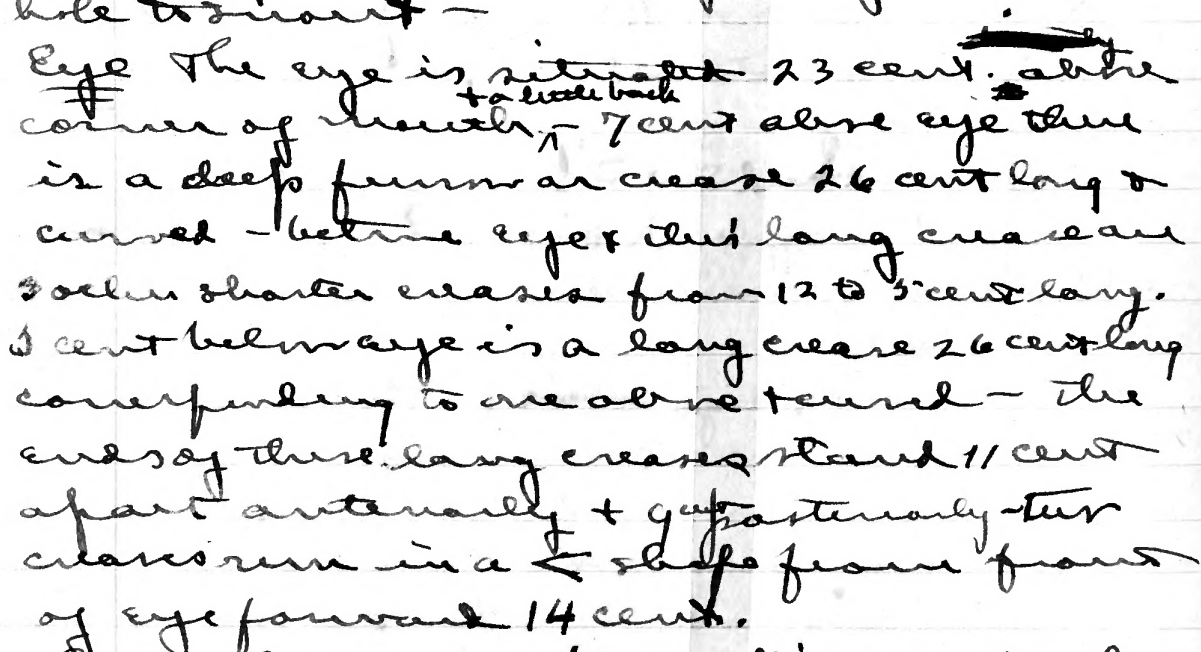 hole to snout —
Eye The eye is situated 23 cent. above
+ a little back
corner of mouth ^ – 7 cent above eye there
is a deep furrow or crease 26 cent long &
curved – between eye & this long crease are
3 other shorter creases from 12 to 5 cent long.
cent below eye is a long crease 26 cent long
corresponding to one above + curved – The
ends of these long creases stand 11 cent
apart anteriorly + 9 cent posteriorly – two
creases run in a < shape from front
of eye forward 14 cent.